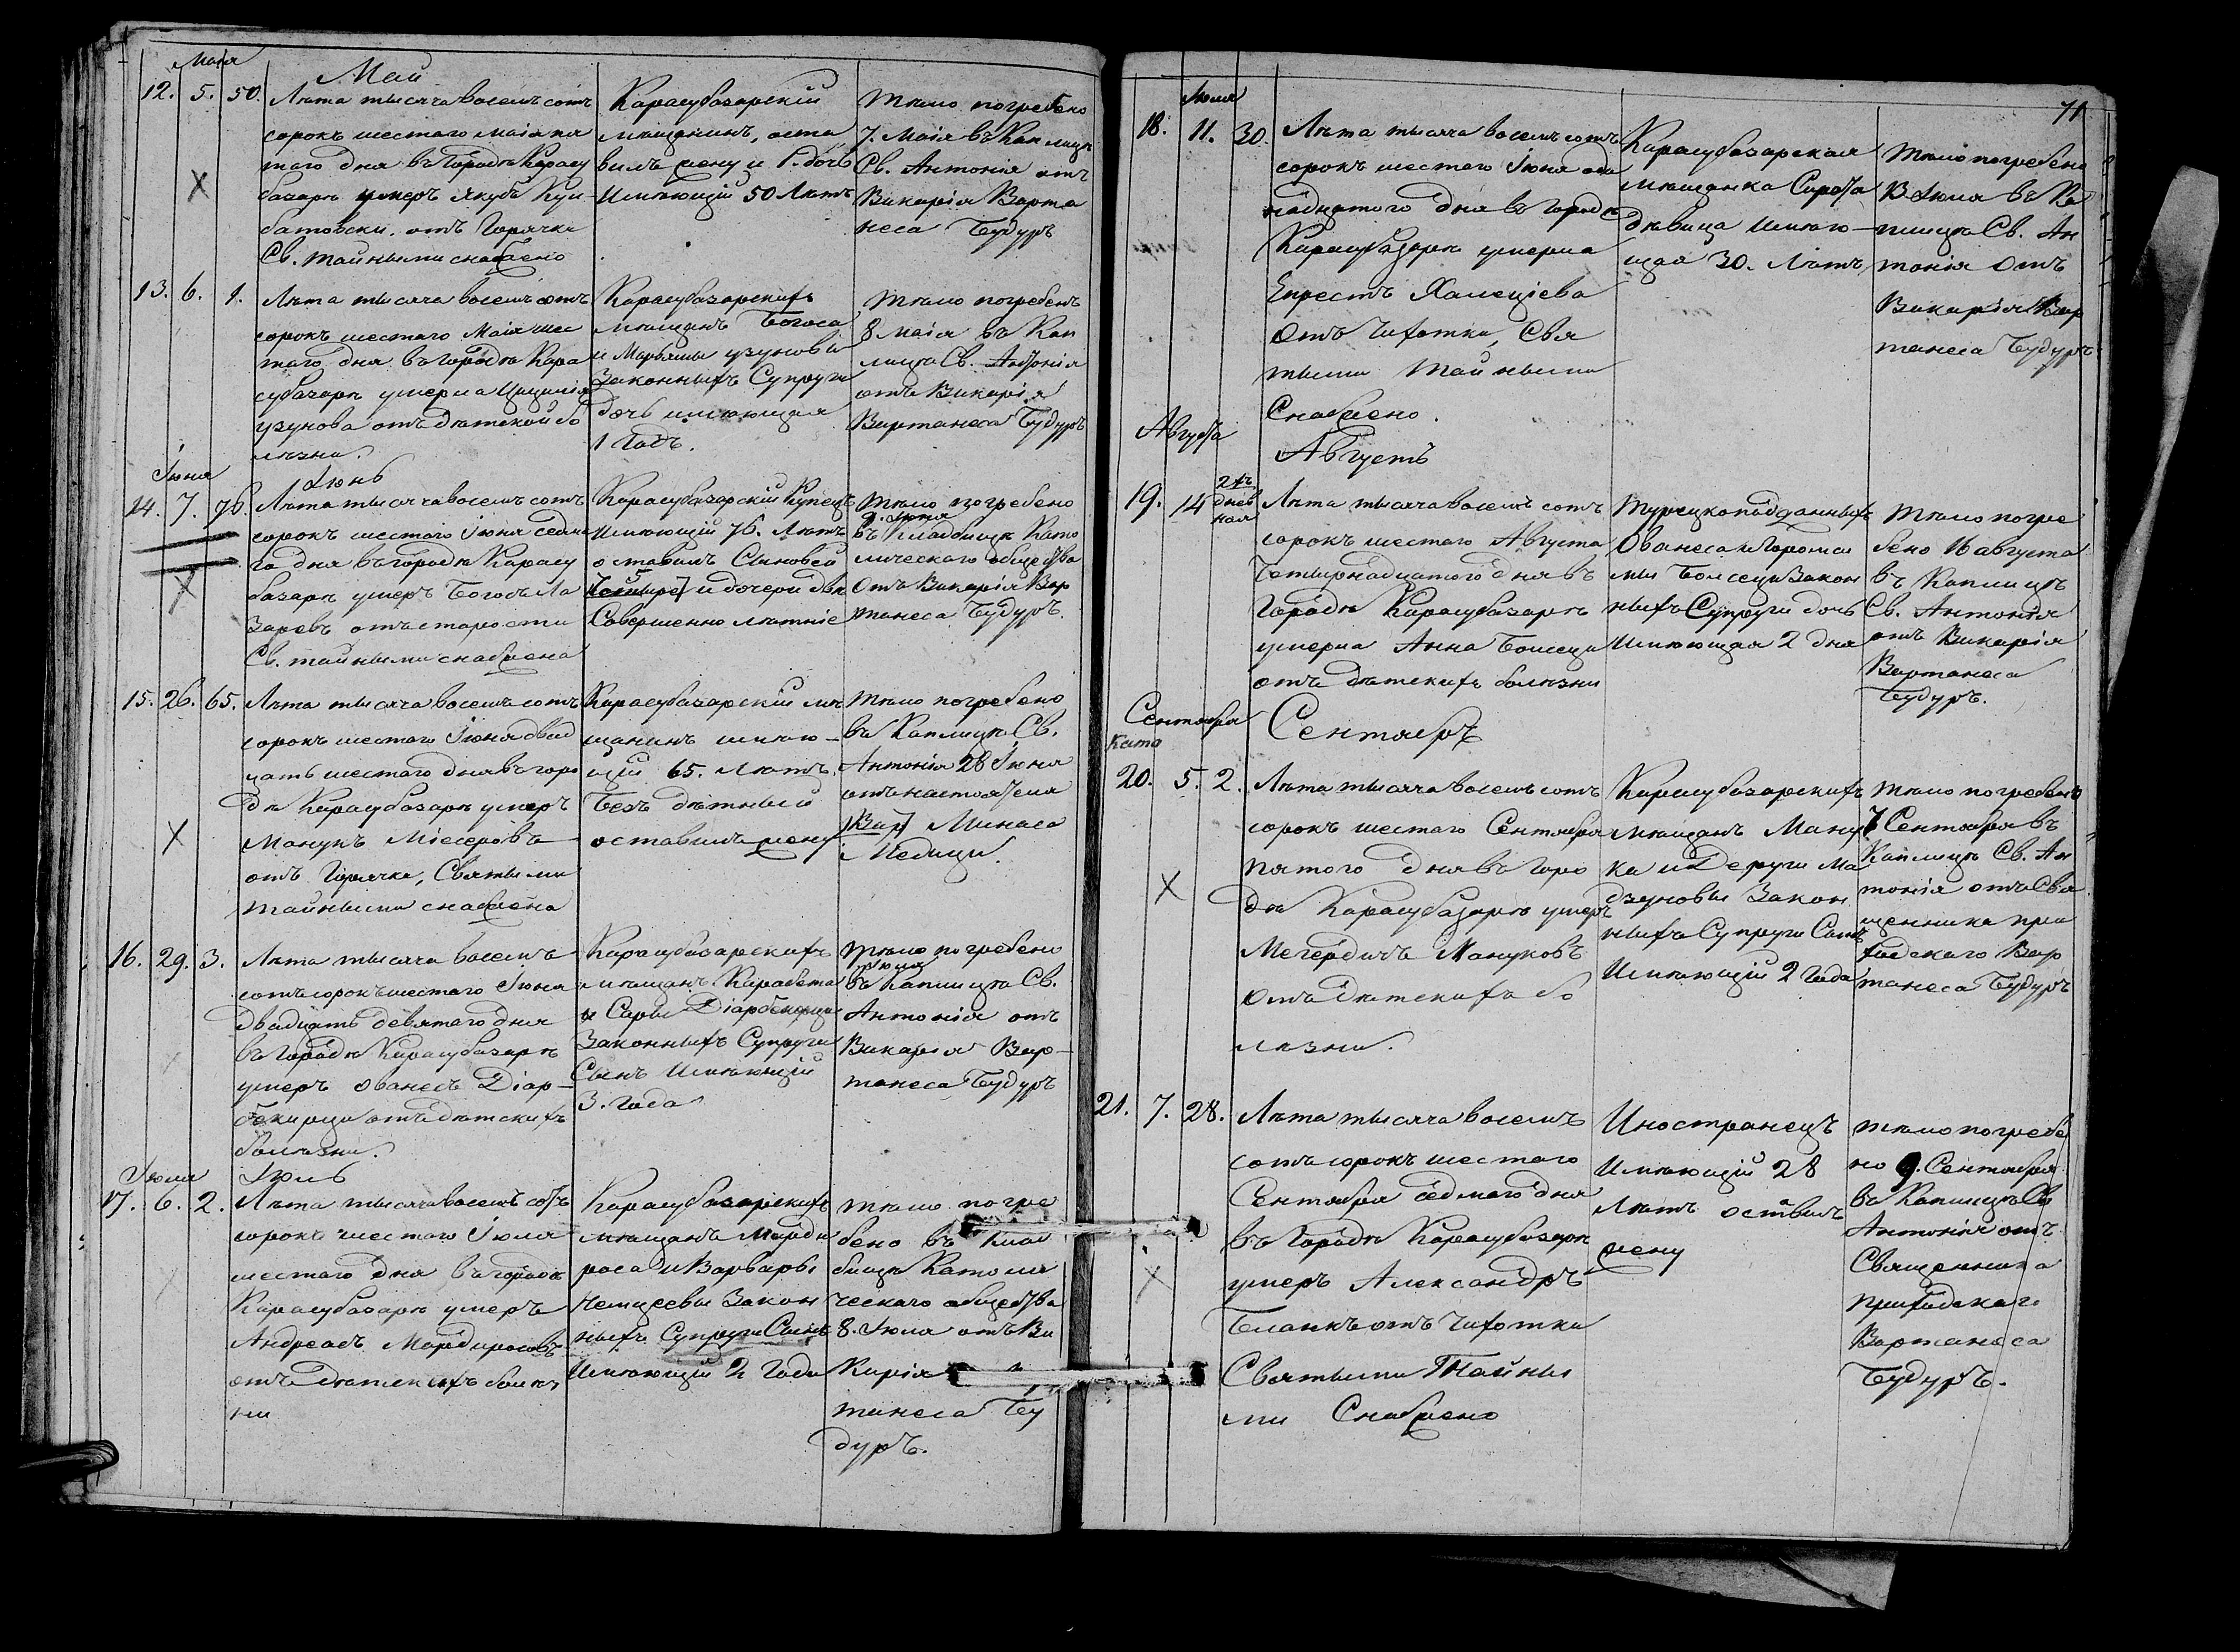 Маія
Май
12. 5. 50. Лѣта тысяча восемъ сотъ
сорокъ шестаго маія пя
таго дня въ Городѣ Карасу
базарѣ умеръ Якубъ
отъ Горячки
Св. тайными снабжено
Карасубазарскій
мѣщанинъ, оста
вилъ жену и 1. дочь
Имѣющій 50 Лѣтъ
Тѣло погребено
7. Маія въ Каплицѣ
Св. Антонія отъ
Викарія Варта
неса Будуръ
13. 6. 1. Лѣта тысяча восемъ сотъ
сорокъ шестаго Маія шес
таго дня въ городѣ Кара
субазарѣ умерла
узунова отъ дѣтской бо
лѣзни.
Карасубазарскихъ
мѣщанъ Богоса
и Марьямы узуновы
Законныхъ Супруги
дочь имѣющая
1 Годъ.
Тѣло погребенъ
8 маія въ Кап
лицѣ Св. Антонія
отъ Викарія
Вартанеса Будуръ
Іюня
Іюнь
14. 7. 76. Лѣта тысяча восемъ сотъ
сорокъ шестаго Іюня седма
го дня въ городѣ Карасу
базарѣ умеръ Богосъ Ла
заревъ отъ старости
Св. тайными снабжена
Карасубазарскій Купецъ
Имѣющій 76. Лѣтъ
оставилъ Сыновей
5
[четыре] и дочери двѣ
Совершенно лѣтніе
Тѣло погребено
9. Іюня
въ Кладбищѣ Като
лическаго общества
Отъ Викарія Вар
танеса Будуръ.
15. 26. 65. Лѣта тысяча восемъ сотъ
сорокъ шестаго Іюня двад
цать шестаго дня въ горо
дѣ Карасубазарѣ умеръ
Манукъ Місеровъ
отъ Горячки, Святыми
тайными снабжена
Карасубазарскій мѣ
щанинъ имѣю-
щій 65. лѣтъ.
Безъ дѣтный
оставилъ жену
Тѣло погребено
въ Каплицѣ Св.
Антонія 28 Іюня
отъ настоятеля
[Вар] Минаса
Медици.
16. 29. 3. Лѣта тысяча восемъ
сотъ сорокъ шестаго Іюня
двадцать девятаго дня
въ городѣ Карасубазарѣ
умеръ Ованесъ Діар-
бекирци отъ дѣтскихъ
болѣзни.
Карасубазарскихъ
мѣщанъ Карабета
и Сары Діарбекирци
Законныхъ Супруги
Сынъ Имѣющій
3. Года
Тѣло погребено
въ Каплицѣ Св.
Антонія отъ
Викарія Вар-
танеса Будуръ
Іюля
Іюль
17. 6. 2. Лѣта тысяча восемъ сотъ
сорокъ шестаго Іюля
шестаго дня въ городѣ
Карасубазарѣ умеръ
Андреасъ Мардиросовъ
отъ Дѣтскихъ болѣз
ни
Карасубазарскихъ
мѣщанъ Марди
роса и Варвары
Закон
ныхъ Супруги Сынъ
Имѣющій 2 Года
Тѣло погре
бено въ Клад
бищѣ Католи
ческаго общества
8. Іюля отъ Ви
карія
танеса Бу
дуръ.
71
Іюля
18. 11. 30. Лѣта тысяча восемъ сотъ
сорокъ шестаго Іюня оди
надцатаго дня въ Городѣ
Карасубазарѣ умерла
Епрестъ Халеціева
Отъ Чахотки, Свя
тыми Тайными
Снабжено.
Карасубазарская
мѣщанка Сирота
дѣвица имѣю-
щая 30. Лѣтъ
Тѣло погребено
13 Іюля въ Ка
плицѣ Св. Ан
тонія Отъ
Викарія Вар
танеса Будуръ
Августа
Августъ
19. 14 2хъ днев ная Лѣта тысяча восемъ сотъ
сорокъ шестаго Августа
Четырнадцатаго дня въ
Городѣ Карасубазарѣ
умерла Анна
отъ дѣтскихъ болѣзни
Турецкоподданныхъ
Ованеса и
Закон
ныхъ Супруги дочь
Имѣющая 2 дня
Тѣло погре
бено 16 августа
въ Каплицѣ
Св. Антонія
отъ Викарія
Вартанеса
Будуръ.
Сентября
Сентябръ
20. 5. 2. Лѣта тысяча восемъ сотъ
сорокъ шестаго Сентября
пятого дня въ Горо
дѣ Карасубазарѣ умеръ
Мегердичъ Мануковъ
Отъ дѣтскихъ бо
лѣзни.
Карасубазарскихъ
мѣщанъ Ману
ка и Ма
Закон
ныхъ Супруги Сынъ
Имѣющій 2 Года
Тѣло погребенъ
7 Сентября въ
Каплицѣ Св. Ан
тонія отъ Свя
щенника при
ходскаго Вар
танеса Будуръ
21. 7. 28. Лѣта тысяча восемъ
сотъ сорокъ шестаго
Сентября седмаго дня
въ Городѣ Карасубазарѣ
умеръ Александръ
Бланкъ отъ Чахотки
Святыми Тайны
ми Снабжено
Иностранецъ
Имѣющій 28
Лѣтъ оставилъ
жену
Тѣло погребе
но 9. Сентября
въ Каплицѣ Св
Антонія отъ
Священника
Приходскаго
Вартанеса
Будуръ.